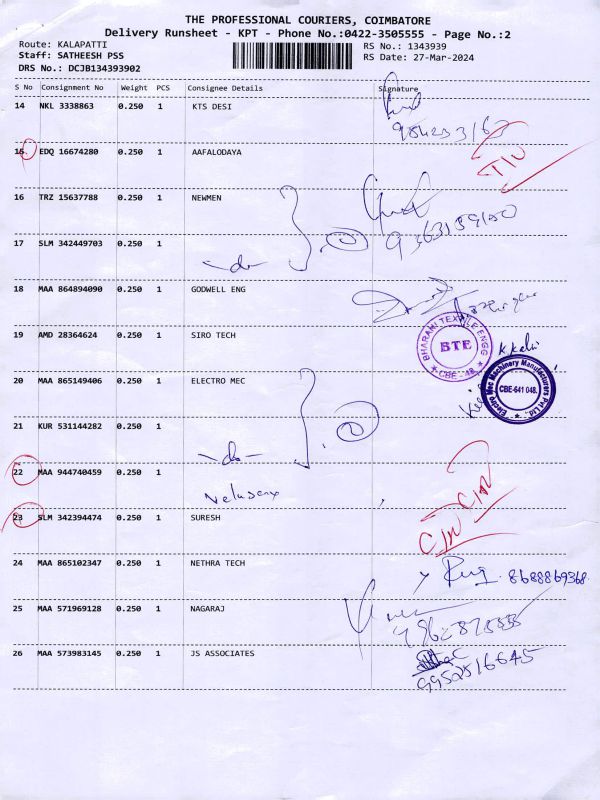 THE PROFESSIONAL COURIERS, COIMBATORE
Delivery Runsheet - KPT - Phone No.:0422-3505555 - Page No.:2
Route: KALAPATTI
Staff: SATHEESH PSS
DRS No.: DCJB134393902
RS No.: 1343939
RS Date: 27-Mar-2024
S No Consignment No Weight PCS Consignee Details Signature
14 NKL 3338863 0.250 1 KTS DESI
15 EDQ 16674280 0.250 1 AAFALODAYA
16 TRZ 15637788 0.250 1 NEWMEN
17 SLM 342449703 0.250 1 -do-
18 MAA 864894090 0.250 1 GODWELL ENG
19 AMD 28364624 0.250 1 SIRO TECH
BHARANI TEXTILE ENGG
BTE
CBE-48
20 MAA 865149406 0.250 1 ELECTRO MEC
Electro Mec Machinery Manufacturers Pvt Ltd.
CBE-641 048.
21 KUR 531144282 0.250 1 -do-
22 MAA 944740459 0.250 1
23 SLM 342394474 0.250 1 SURESH
24 MAA 865102347 0.250 1 NETHRA TECH 8688869368
25 MAA 571969128 0.250 1 NAGARAJ
26 MAA 573983145 0.250 1 JS ASSOCIATES 9952516645